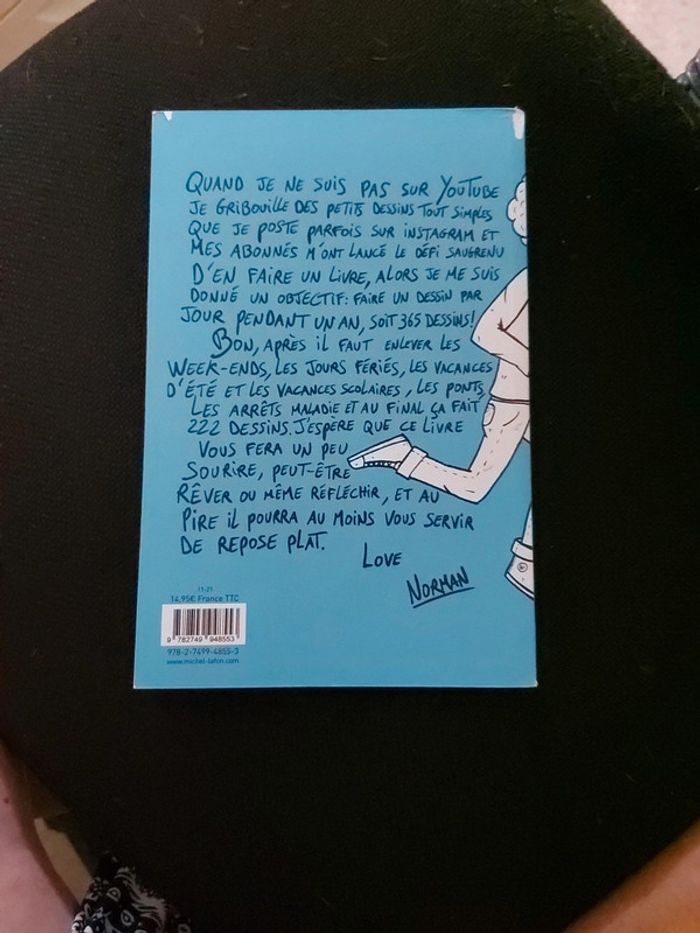 QUAND JE NE SUIS PAS SUR YOUTUBE
JE GRIBOUILLE DES PETITS DESSINS TOUT SIMPLES
QUE JE POSTE PARFOIS SUR INSTAGRAM ET
MES ABONNÉS M'ONT LANCÉ LE DÉFI SAUGRENU
D'EN FAIRE UN LIVRE, ALORS JE ME SUIS
DONNÉ UN OBJECTIF: FAIRE UN DESSIN PAR
JOUR PENDANT UN AN, SOIT 365 DESSINS!
BON, APRÈS IL FAUT ENLEVER LES
WEEK-ENDS, LES JOURS FÉRIÉS, LES VACANCES
D'ÉTÉ ET LES VACANCES SCOLAIRES, LES PONTS,
LES ARRÊTS MALADIE ET AU FINAL ÇA FAIT
222 DESSINS. J'ESPÈRE QUE CE LIVRE
VOUS FERA UN PEU
SOURIRE, PEUT-ÊTRE
RÊVER OU MÊME RÉFLÉCHIR, ET AU
PIRE IL POURRA AU MOINS VOUS SERVIR
DE REPOSE PLAT.
LOVE
NORMAN
11-21
14,95€ France TTC
9 782749 948553
978-2-7499-4855-3
www.michel-lafon.com